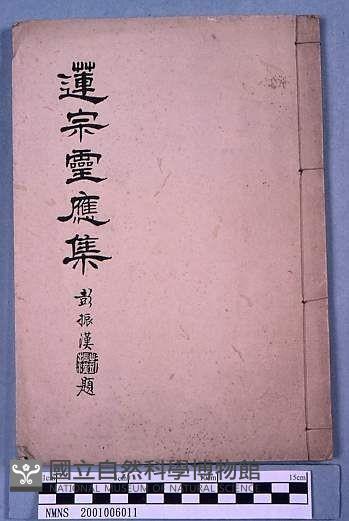 蓮宗靈應集
彭振漢題
國立自然科學博物館
NATIONAL MUSEUM OF NATURAL SCIENCE
5cm
15cm
NMNS 2001006011